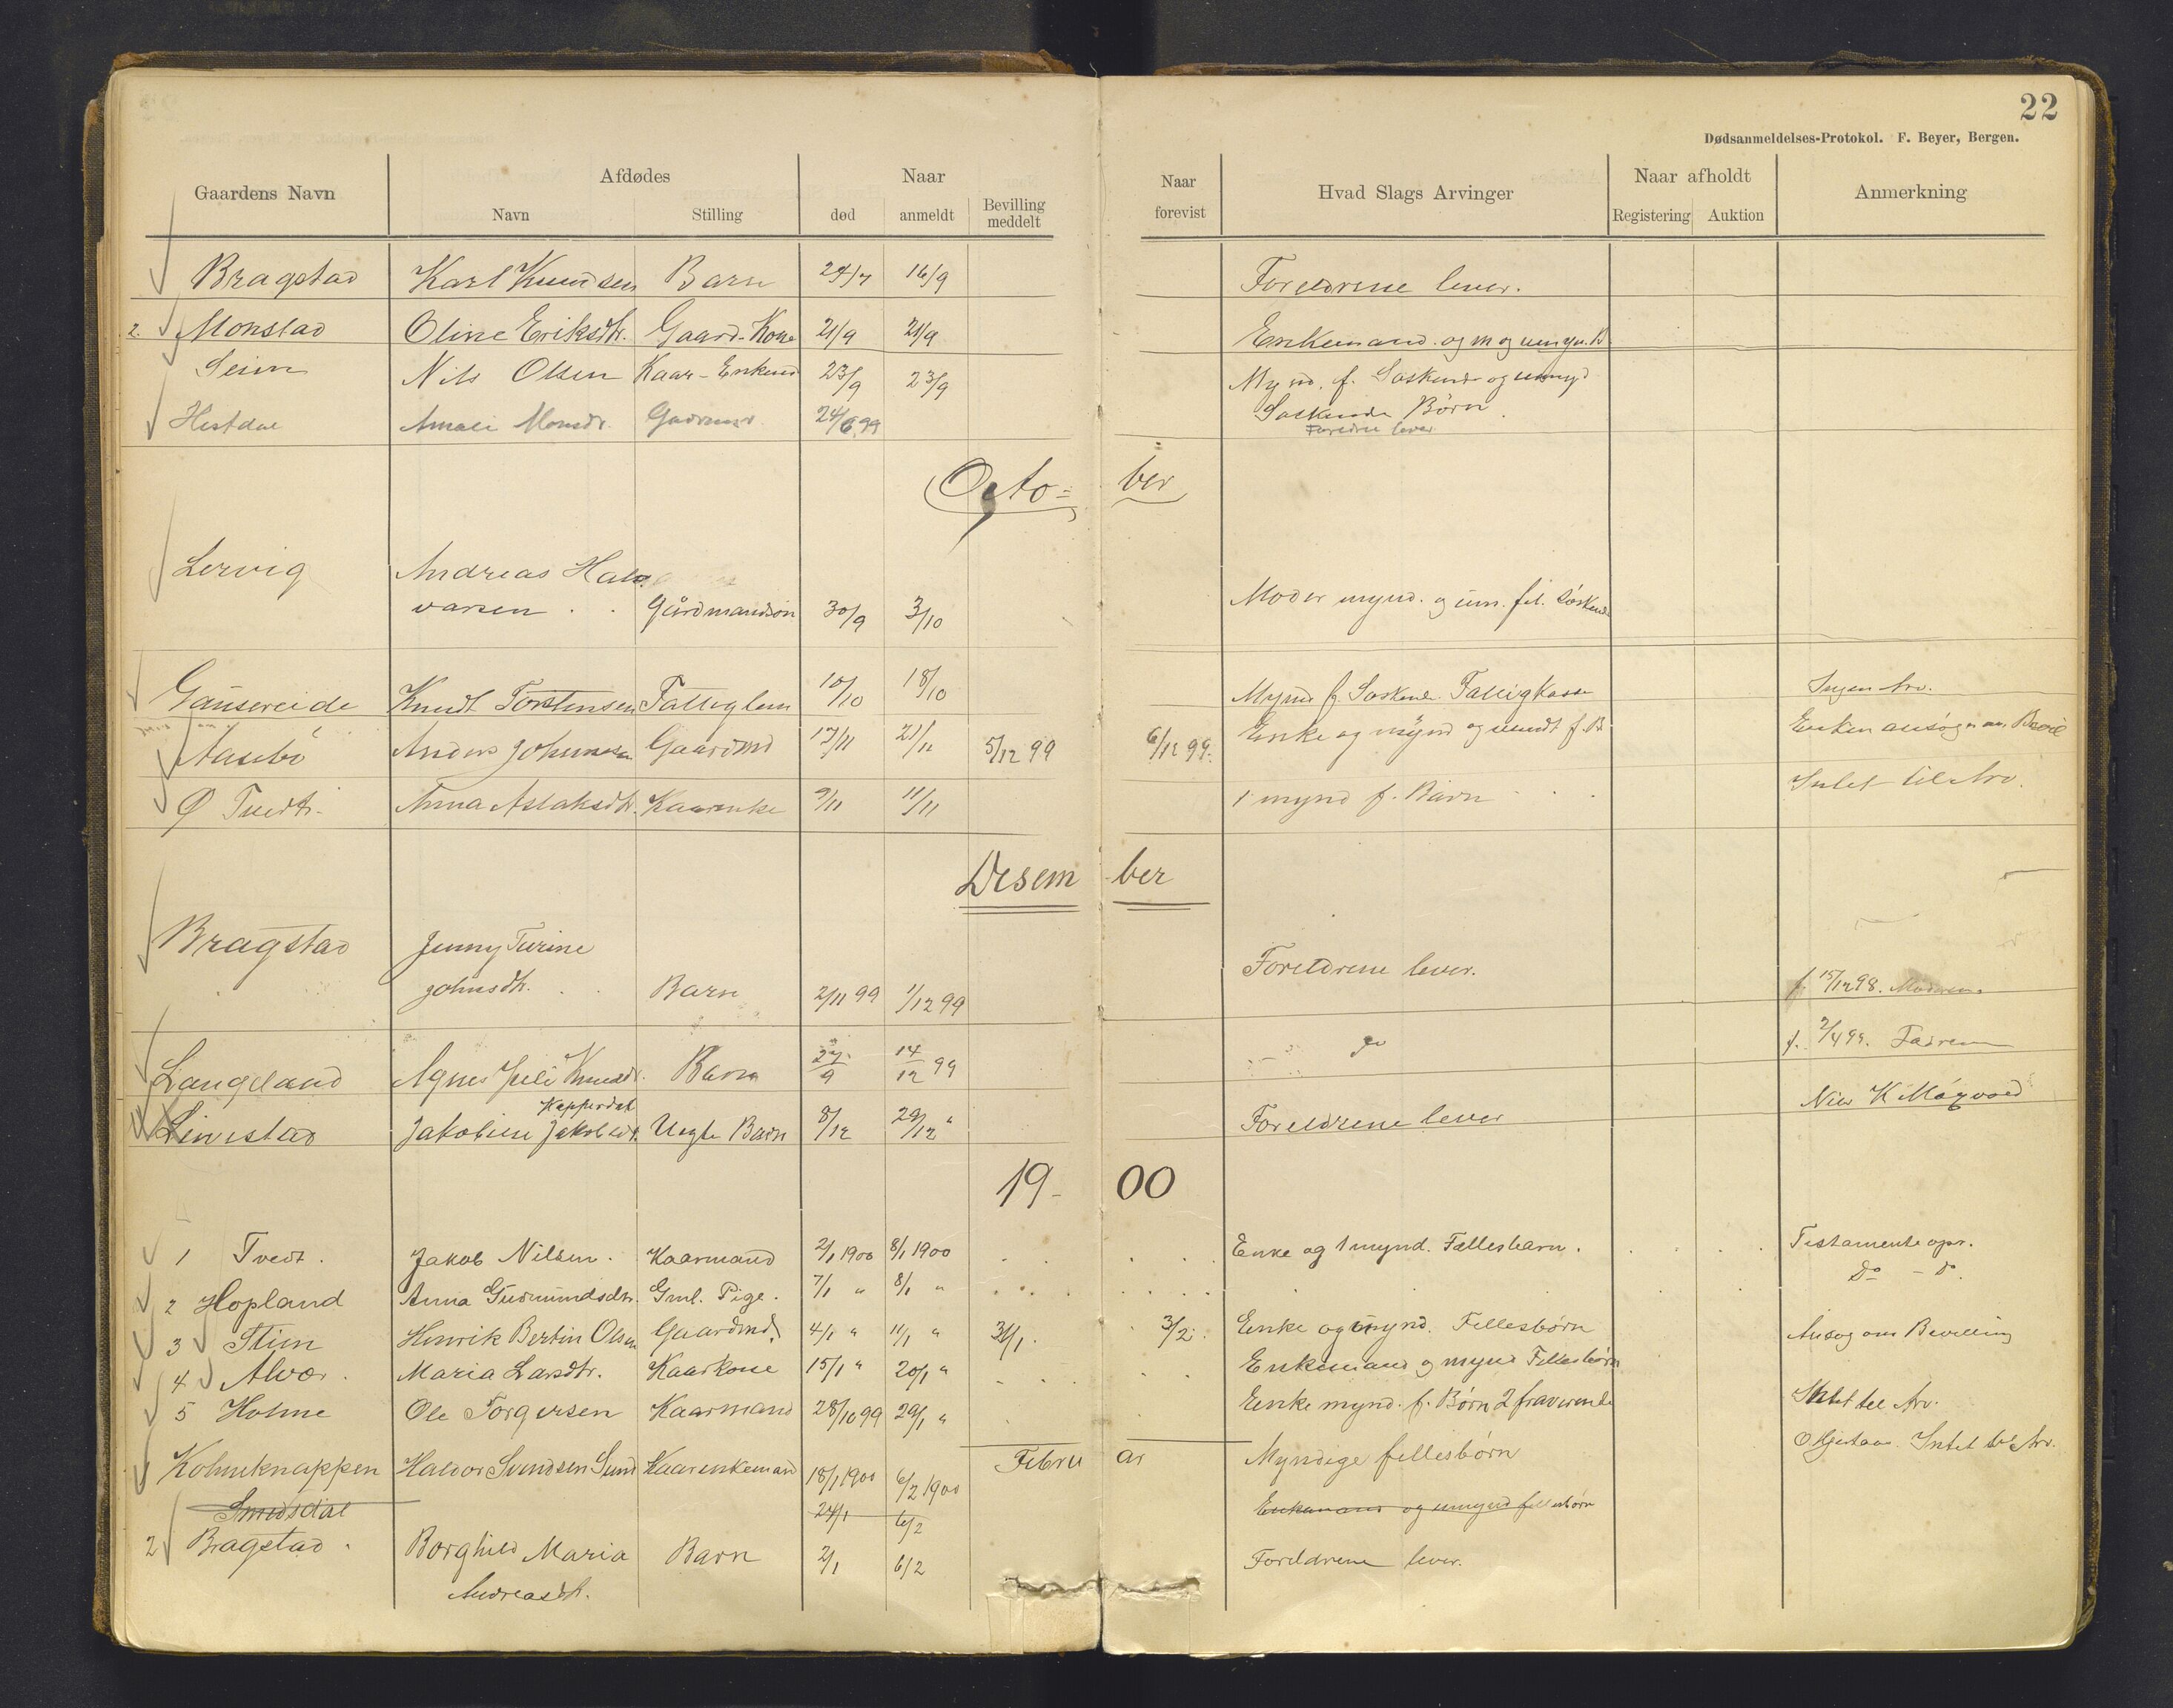 22
Dødsanmeldelses-Protokol. F. Beyer, Bergen.
Gaardens Navn Afdødes Naar Naar forevist Hvad Slags Arvinger Naar afholdt Anmerkning
Navn Stilling død anmeldt Bevilling meddelt Registering Auktion
Bragstad Karl Knudsen Barn 24/7 16/9 Foreldrene lever.
2. Monstad Oline Eriksdtr. Gaard-Kone 21/9 21/9 Enkemand. og m og umyn. B
Seim Nils Olsen Kaar-Enkend 23/9 23/9 Mynd. f. Søskende og umynd
Søskende Børn.
Hestdal Amali Monsdr. 24/6 99 Foreldre lever
Octo=ber
Lervig Andreas Hal
varsen . . Gårdmandsøn 30/9 3/10 Moder mynd. og um. fel. Søskende
Gausereide Knudt Torstensen Fattiglem 10/10 18/10 Mynd f. Søskende. Fattigkasse Ingen Arv.
Aasebø Anders Johannesen Gaardmd 17/11 21/11 5/12 99 6/12 99. Enke og mynd og umdt f. B Enken ansøger om Bevil
Ø Tvedt. Anna Aslaksdtr. Kaarenke 9/11 11/11 1 mynd f. Barn . . . Intet til Arv.
Desember
Bragstad Jenny Turine
Johnsdtr. . . Barn 2/11 99 1/12 99 Foreldrene lever. f. 15/12 98. Moderen.
Langeland Agnes Knudsdtr. Barn 27/9 14/12 99 do f. 2/4 99. Faderen
Kopperdal
Linestad Jakobine Jakobsdt. Uegte Barn 8/12 29/12 " Foreldrene lever Nils K Mågesed
19-00
1 Tvedt. Jakob Nilsen. Kaarmand 2/1 1900 8/1 1900 Enke og 1 mynd. Fellesbarn. Testamente opr.
2 Hopland Anna Gudmundsdtr. Gml. Pige. 7/1 " 8/1 " Do - do.
3 Stim Henrik Bertin Olsen Gaardmd. 4/1 " 11/1 " 31/1. 3/2. Enke og mynd. Fellesbørn Ansøg om Bevilling
4 Alver. Maria Larsdtr. Kaarkone 15/1 " 20/1 " Enkemand og mynd Fellesbørn
5 Holme Ole Torgersen Kaarmand 28/10 99 29/1 " Enke mynd. f. Børn 2 fraverende Intet til Arv.
Februar
Kolmeknappen Haldor Svendsen Sund Kaarenkemand 18/1 1900 6/2 1900 Myndige fellesbørn O Hjertaas. Intet til Arv.
Smedsdal 24/1 6/2 Enkemand og umynd fellesbørn
2 Bragstad. Borghild Maria Barn 2/1 6/2 Foreldrene lever.
Andreasdtr.